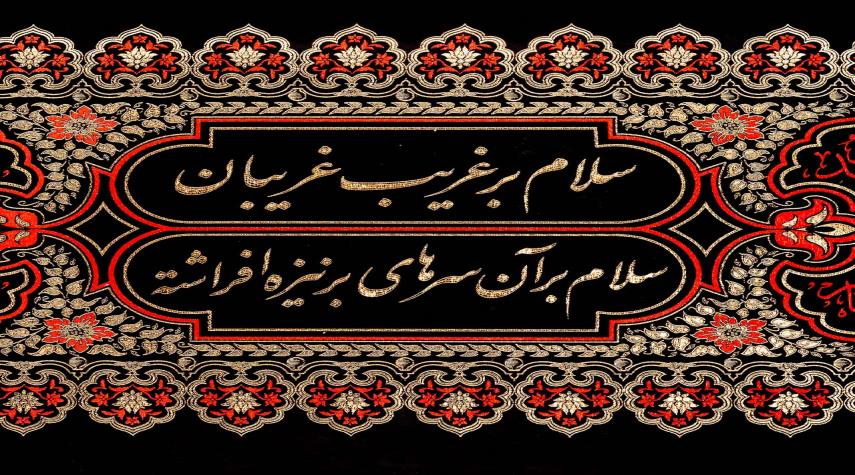 سلام بر غریب غریبان
سلام بر آن سرهای بر نیزه افراشته